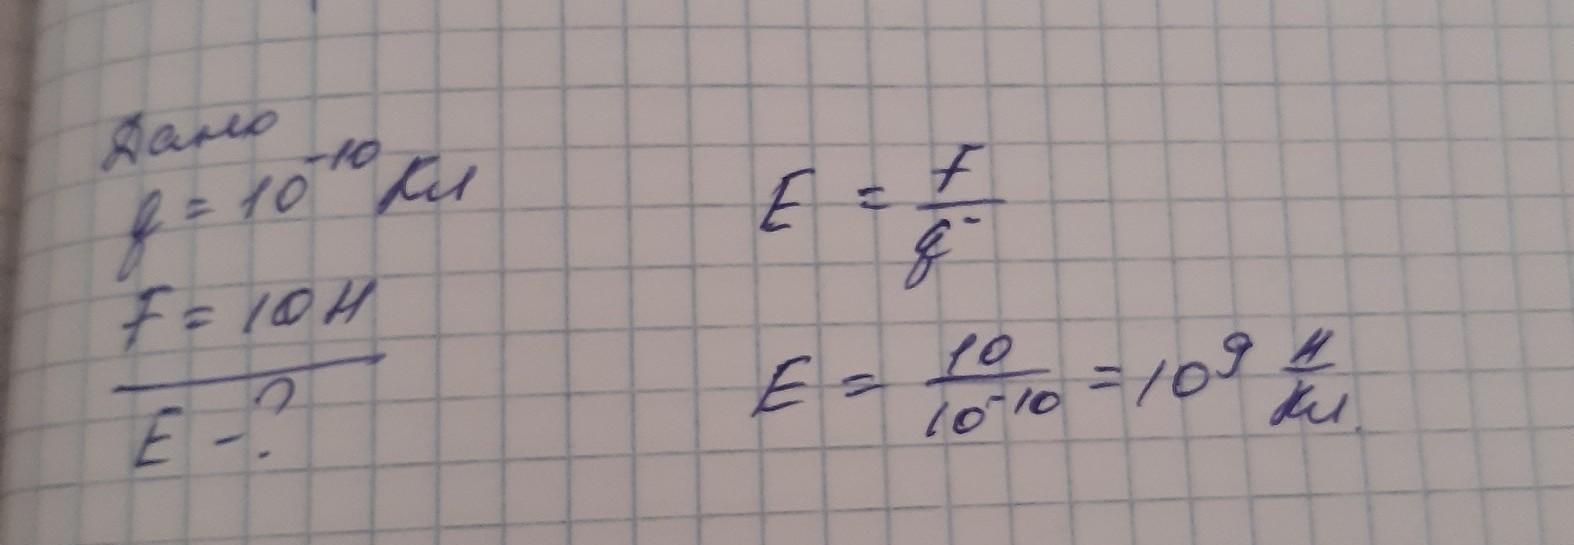 Дано
q = 10⁻¹⁰ Кл
F = 10 Н
E - ?
E = F/q
E = 10/10⁻¹⁰ = 10⁹ Н/Кл.